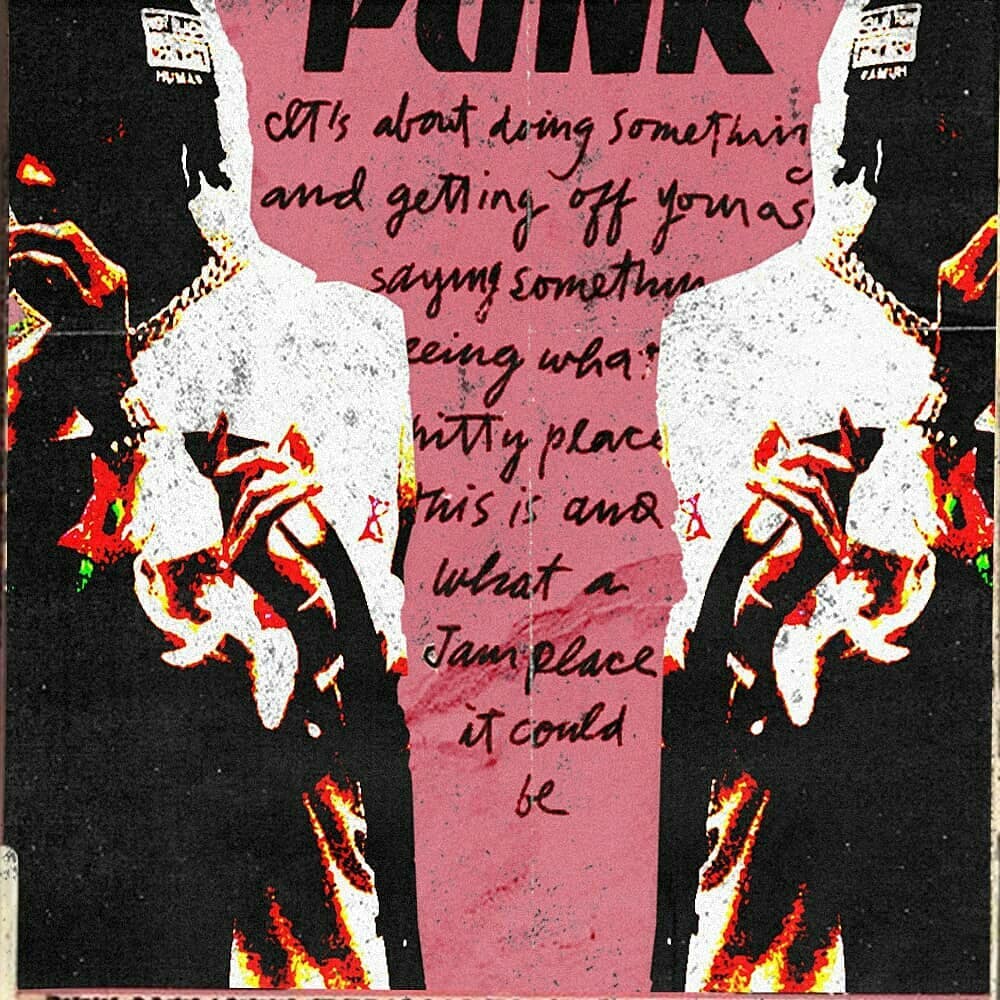 PUNK
HUMAN
It's about doing somethin
g
and getting off your as
saying somethin
eeing wha
hitty place
this is and
what a
Jam place
it could
be